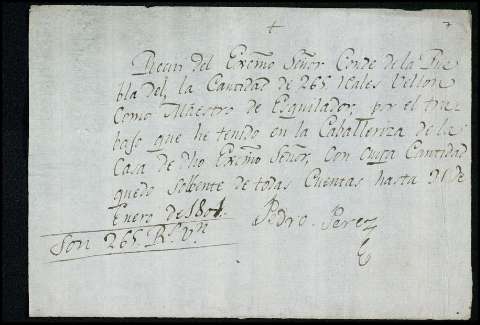 Recivi del Exc̃mo Señor Conde de la Pue
bla del, la Cantidad de 265 reales Vellon
como Maestro de Esquilador, por el tra-
bajo que he tenido en la Caballeriza de la
Casa de dho Exc̃mo Señor, con cuya Cantidad
quedo solbente de todas Cuentas hasta 31 de
Enero de 1801.
Pedro Perez
Son 265 Rs. Vn